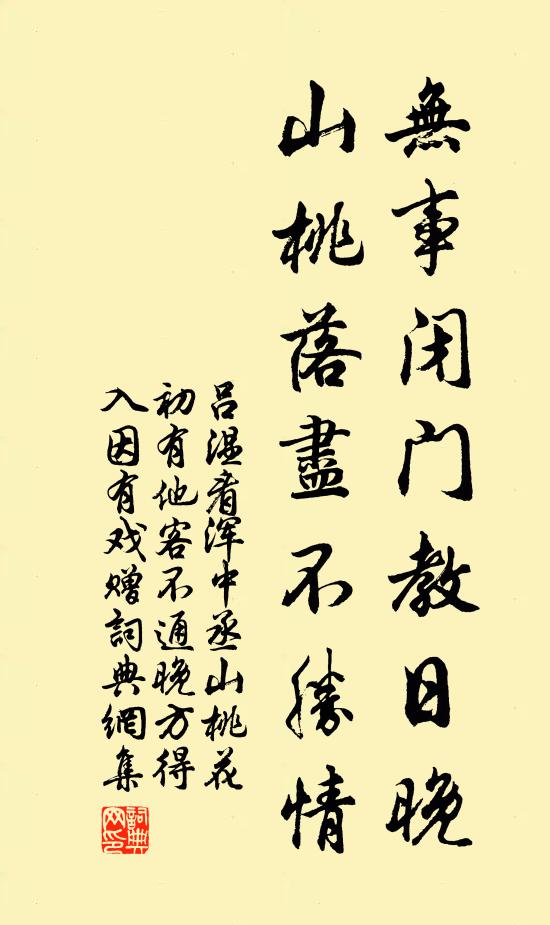 無事闭门教日晚
山桃落盡不勝情
吕温看浑中丞山桃花
初有他客不通晚方得
入因有戏赠詞典網集
詞典網印